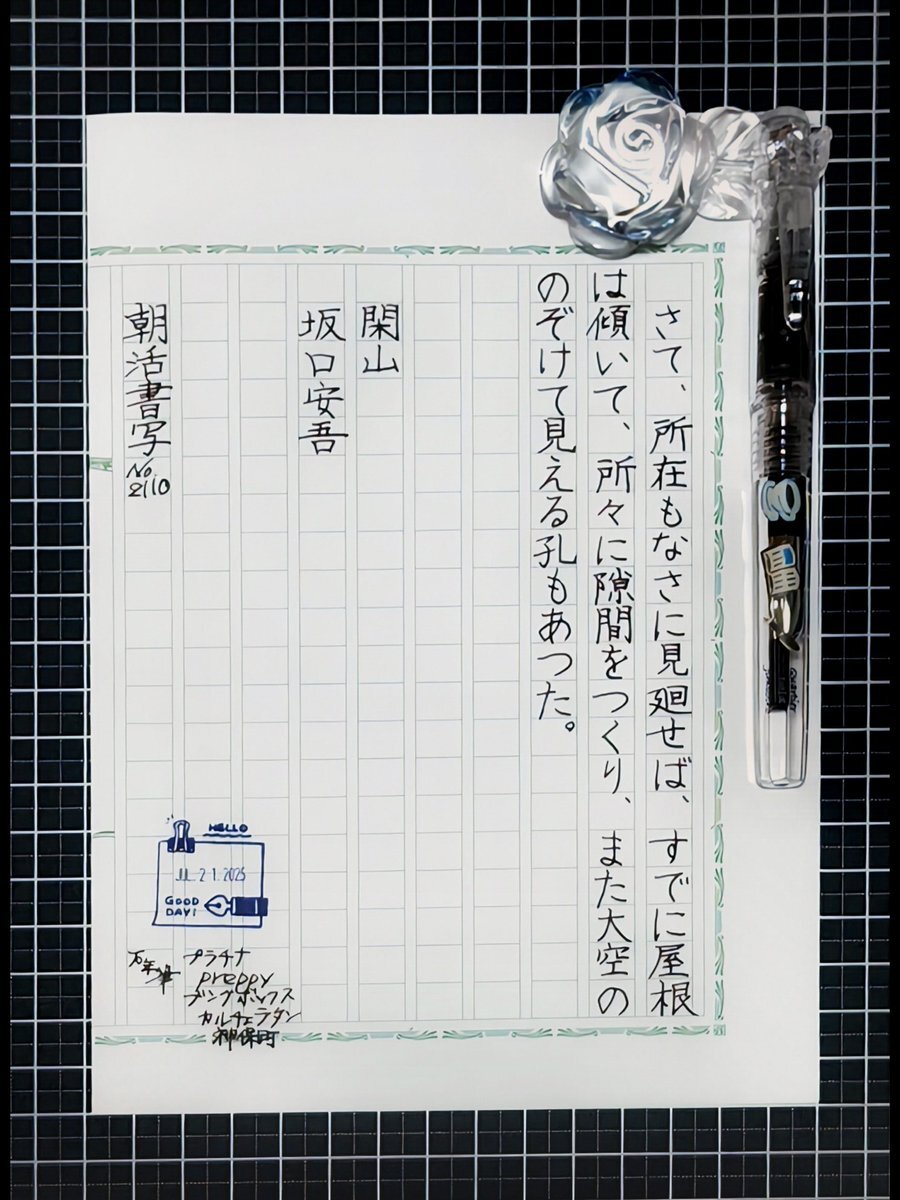 さて、所在もなさに見廻せば、すでに屋根
は傾いて、所々に隙間をつくり、また大空の
のぞけて見える孔もあつた。
閑山
坂口安吾
朝活書写
No.
2110
HELLO
JUL 21.2025
GOOD
DAY!
万年筆
プラチナ
preppy
ブングボックス
カルチェラタン
神保町